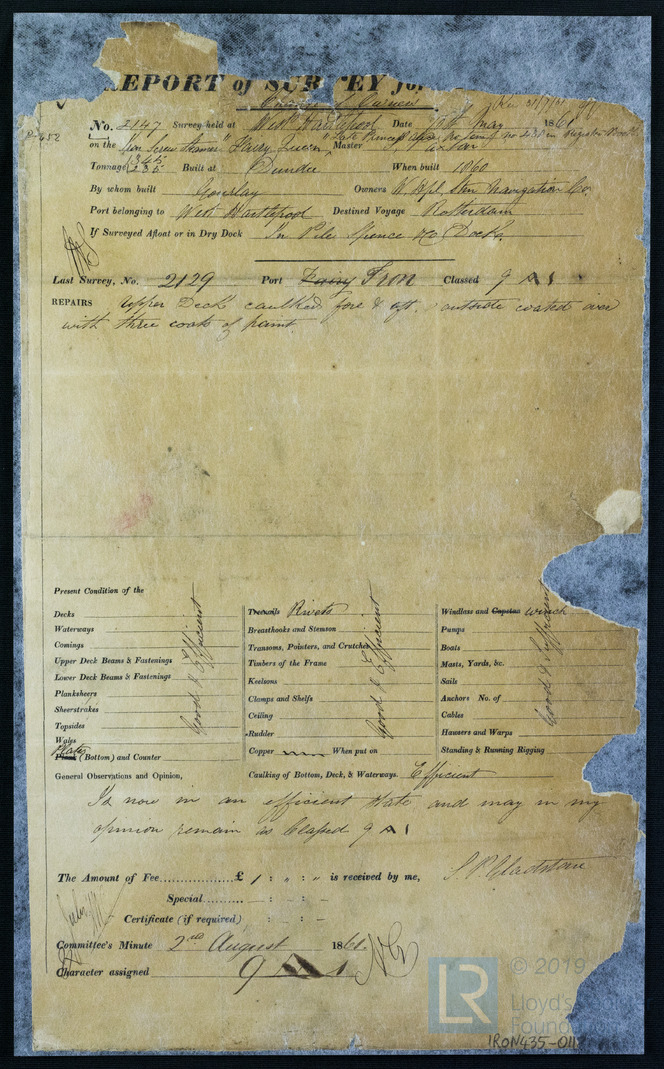 REPORT of SURVEY for
Rec 31/7/61
No. 2147 Survey held at West Hartlepool Date 10th May 1861
on the Iron Screw Steamer Fairy Queen Late Master
P. 452
Tonnage 345 235 Built at Dundee When built 1860
By whom built Gourlay Owners W Hpl Stm Navigation Co.
Port belonging to West Hartlepool Destined Voyage Rotterdam
If Surveyed Afloat or in Dry Dock In Pile Spence & Co Docks.
Last Survey, No. 2129 Port Fairy Iron Classed 9 A 1
REPAIRS Upper Deck caulked fore & aft. outside coated over
with three coats of paint.
Present Condition of the
Decks
Waterways
Comings
Upper Deck Beams & Fastenings
Lower Deck Beams & Fastenings
Planksheers
Sheerstrakes
Topsides
Wales
Plates
Plank (Bottom) and Counter
Good & Efficient
Treenails Rivets
Breasthooks and Stemson
Transoms, Pointers, and Crutches
Timbers of the Frame
Keelsons
Clamps and Shelfs
Ceiling
Rudder
Copper When put on
Good & Efficient
Windlass and Capstan winch
Pumps
Boats
Masts, Yards, &c.
Sails
Anchors No. of
Cables
Hawsers and Warps
Standing & Running Rigging
Good & Sufficient
General Observations and Opinion, Caulking of Bottom, Deck, & Waterways. Efficient
Is now in an efficient state and may in my
opinion remain as Classed 9 A 1
The Amount of Fee £ 1 : " : " is received by me, S. P. Gladstone
Special : : –
Certificate (if required) : : –
Committee's Minute 2nd August 1861.
Character assigned 9 A 1
LR
© 2019
Lloyd's
Foundation
IRON435-0117